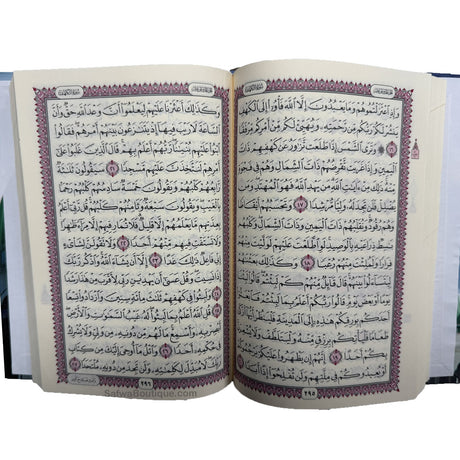 سورة الكهف
وَإِذِ اعْتَزَلْتُمُوهُمْ وَمَا يَعْبُدُونَ إِلَّا اللَّهَ فَأْوُوا إِلَى الْكَهْفِ
يَنشُرْ لَكُمْ رَبُّكُم مِّن رَّحْمَتِهِ وَيُهَيِّئْ لَكُم مِّنْ أَمْرِكُم مِّرْفَقًا
۝١٦ ۞ وَتَرَى الشَّمْسَ إِذَا طَلَعَت تَّزَاوَرُ عَن كَهْفِهِمْ ذَاتَ
الْيَمِينِ وَإِذَا غَرَبَت تَّقْرِضُهُمْ ذَاتَ الشِّمَالِ وَهُمْ فِي فَجْوَةٍ
مِّنْهُ ذَٰلِكَ مِنْ آيَاتِ اللَّهِ مَن يَهْدِ اللَّهُ فَهُوَ الْمُهْتَدِ وَمَن
يُضْلِلْ فَلَن تَجِدَ لَهُ وَلِيًّا مُّرْشِدًا ۝١٧ وَتَحْسَبُهُمْ أَيْقَاظًا
وَهُمْ رُقُودٌ وَنُقَلِّبُهُمْ ذَاتَ الْيَمِينِ وَذَاتَ الشِّمَالِ وَكَلْبُهُم
بَاسِطٌ ذِرَاعَيْهِ بِالْوَصِيدِ لَوِ اطَّلَعْتَ عَلَيْهِمْ لَوَلَّيْتَ مِنْهُمْ
فِرَارًا وَلَمُلِئْتَ مِنْهُمْ رُعْبًا ۝١٨ وَكَذَٰلِكَ بَعَثْنَاهُمْ
لِيَتَسَاءَلُوا بَيْنَهُمْ قَالَ قَائِلٌ مِّنْهُمْ كَمْ لَبِثْتُمْ قَالُوا لَبِثْنَا
يَوْمًا أَوْ بَعْضَ يَوْمٍ قَالُوا رَبُّكُمْ أَعْلَمُ بِمَا لَبِثْتُمْ فَابْعَثُوا
أَحَدَكُم بِوَرِقِكُمْ هَٰذِهِ إِلَى الْمَدِينَةِ فَلْيَنظُرْ أَيُّهَا أَزْكَىٰ
طَعَامًا فَلْيَأْتِكُم بِرِزْقٍ مِّنْهُ وَلْيَتَلَطَّفْ وَلَا يُشْعِرَنَّ
بِكُمْ أَحَدًا ۝١٩ إِنَّهُمْ إِن يَظْهَرُوا عَلَيْكُمْ يَرْجُمُوكُمْ
أَوْ يُعِيدُوكُمْ فِي مِلَّتِهِمْ وَلَن تُفْلِحُوا إِذًا أَبَدًا ۝٢٠
٢٩٥
سورة الكهف
وَكَذَٰلِكَ أَعْثَرْنَا عَلَيْهِمْ لِيَعْلَمُوا أَنَّ وَعْدَ اللَّهِ حَقٌّ وَأَنَّ
السَّاعَةَ لَا رَيْبَ فِيهَا إِذْ يَتَنَازَعُونَ بَيْنَهُمْ أَمْرَهُمْ فَقَالُوا
ابْنُوا عَلَيْهِم بُنْيَانًا رَّبُّهُمْ أَعْلَمُ بِهِمْ قَالَ الَّذِينَ غَلَبُوا عَلَىٰ
أَمْرِهِمْ لَنَتَّخِذَنَّ عَلَيْهِم مَّسْجِدًا ۝٢١ سَيَقُولُونَ ثَلَاثَةٌ
رَّابِعُهُمْ كَلْبُهُمْ وَيَقُولُونَ خَمْسَةٌ سَادِسُهُمْ كَلْبُهُمْ رَجْمًا
بِالْغَيْبِ وَيَقُولُونَ سَبْعَةٌ وَثَامِنُهُمْ كَلْبُهُمْ قُل رَّبِّي أَعْلَمُ
بِعِدَّتِهِم مَّا يَعْلَمُهُمْ إِلَّا قَلِيلٌ فَلَا تُمَارِ فِيهِمْ إِلَّا مِرَاءً ظَاهِرًا
وَلَا تَسْتَفْتِ فِيهِم مِّنْهُمْ أَحَدًا ۝٢٢ وَلَا تَقُولَنَّ لِشَايْءٍ إِنِّي
فَاعِلٌ ذَٰلِكَ غَدًا ۝٢٣ إِلَّا أَن يَشَاءَ اللَّهُ وَاذْكُر رَّبَّكَ
إِذَا نَسِيتَ وَقُلْ عَسَىٰ أَن يَهْدِيَنِ رَبِّي لِأَقْرَبَ مِنْ هَٰذَا رَشَدًا
۝٢٤ وَلَبِثُوا فِي كَهْفِهِمْ ثَلَاثَ مِائَةٍ سِنِينَ وَازْدَادُوا تِسْعًا
۝٢٥ قُلِ اللَّهُ أَعْلَمُ بِمَا لَبِثُوا لَهُ غَيْبُ السَّمَاوَاتِ وَالْأَرْضِ
أَبْصِرْ بِهِ وَأَسْمِعْ مَا لَهُم مِّن دُونِهِ مِن وَلِيٍّ وَلَا يُشْرِكُ
فِي حُكْمِهِ أَحَدًا ۝٢٦ وَاتْلُ مَا أُوحِيَ إِلَيْكَ مِن كِتَابِ
رَبِّكَ لَا مُبَدِّلَ لِكَلِمَاتِهِ وَلَن تَجِدَ مِن دُونِهِ مُلْتَحَدًا ۝٢٧
٢٩٦
SafwaBoutique.com